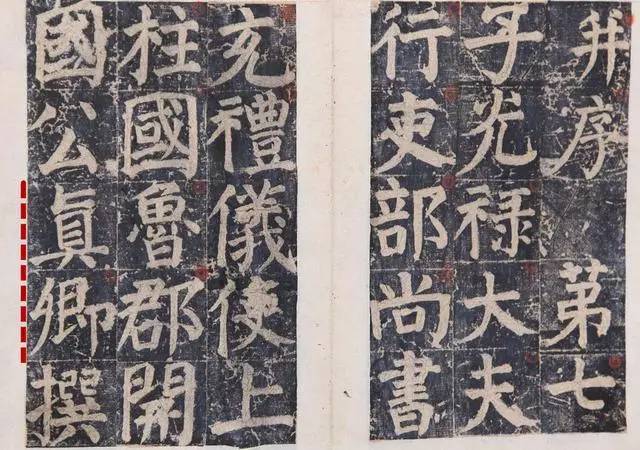 并序 第七
子光禄大夫
行吏部尚書
充禮儀使上
柱國魯郡開
國公真卿撰